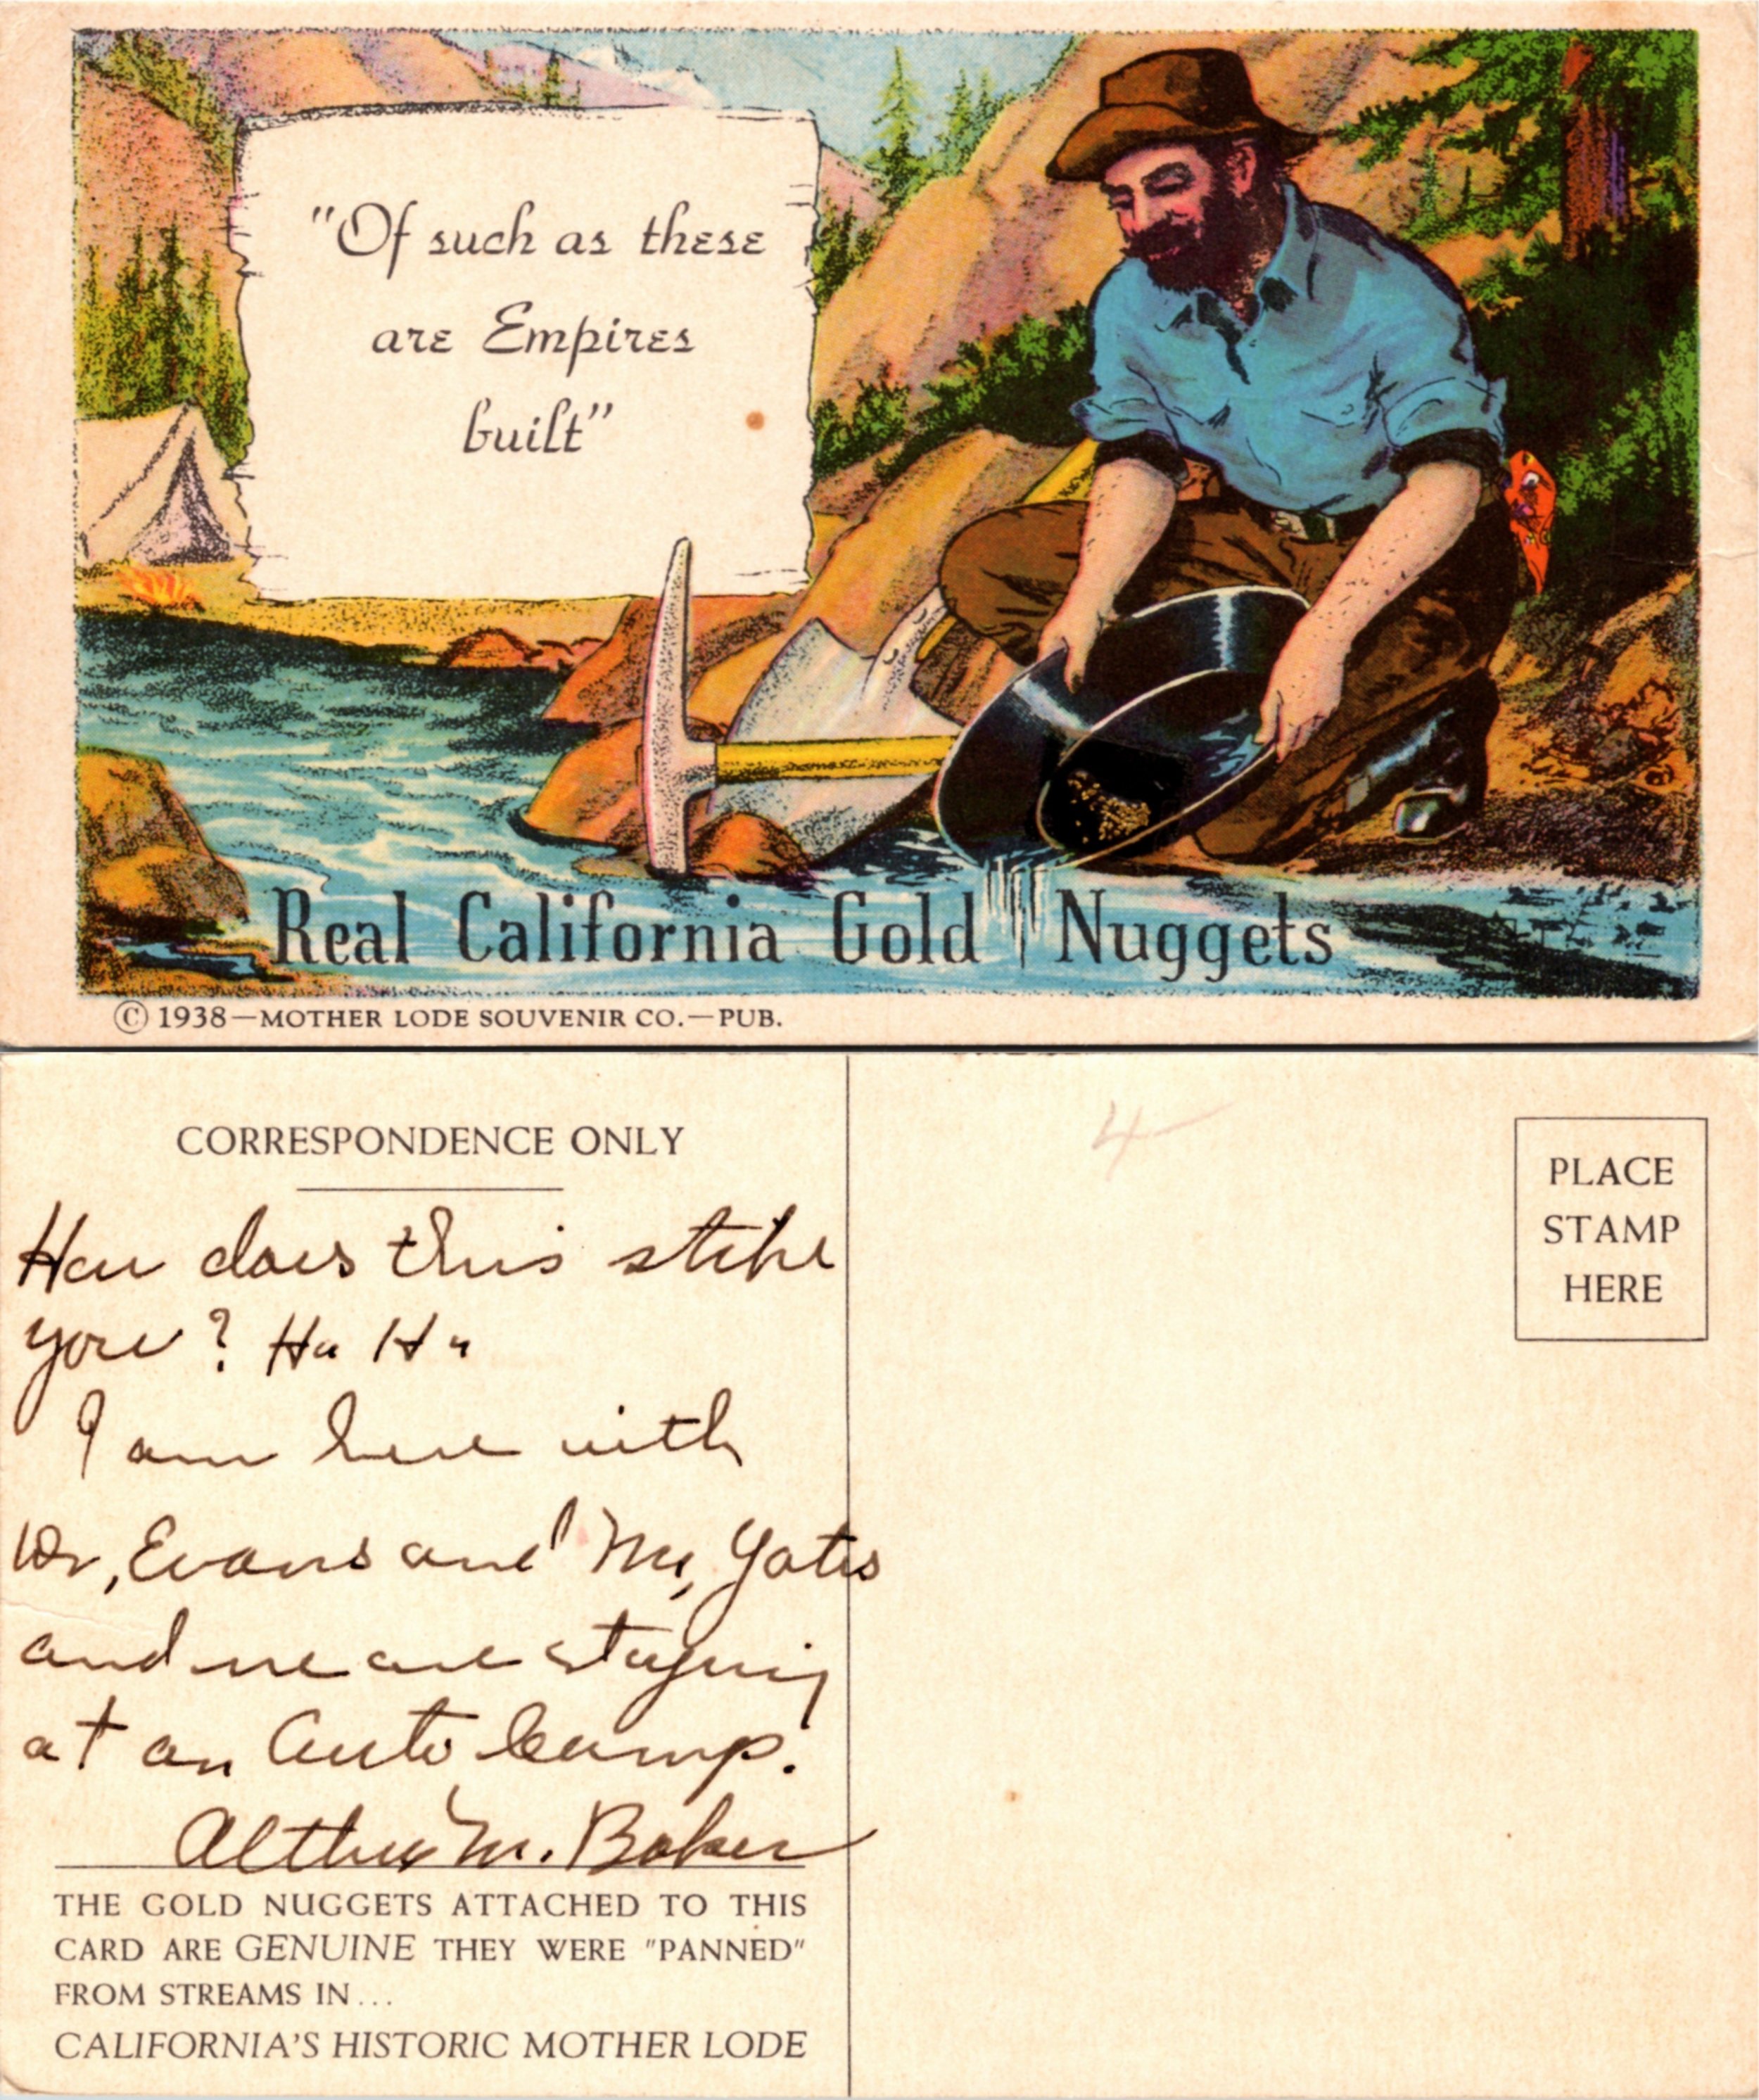 "Of such as these
are Empires
built"
Real California Gold Nuggets
© 1938—MOTHER LODE SOUVENIR CO.—PUB.
CORRESPONDENCE ONLY
4
PLACE
STAMP
HERE
How does this strike
you? Ha Ha
I am here with
Dr, Evans and Mr, Yates
and we are staying
at an Auto Camp.
M. Baker
THE GOLD NUGGETS ATTACHED TO THIS
CARD ARE GENUINE THEY WERE "PANNED"
FROM STREAMS IN...
CALIFORNIA'S HISTORIC MOTHER LODE